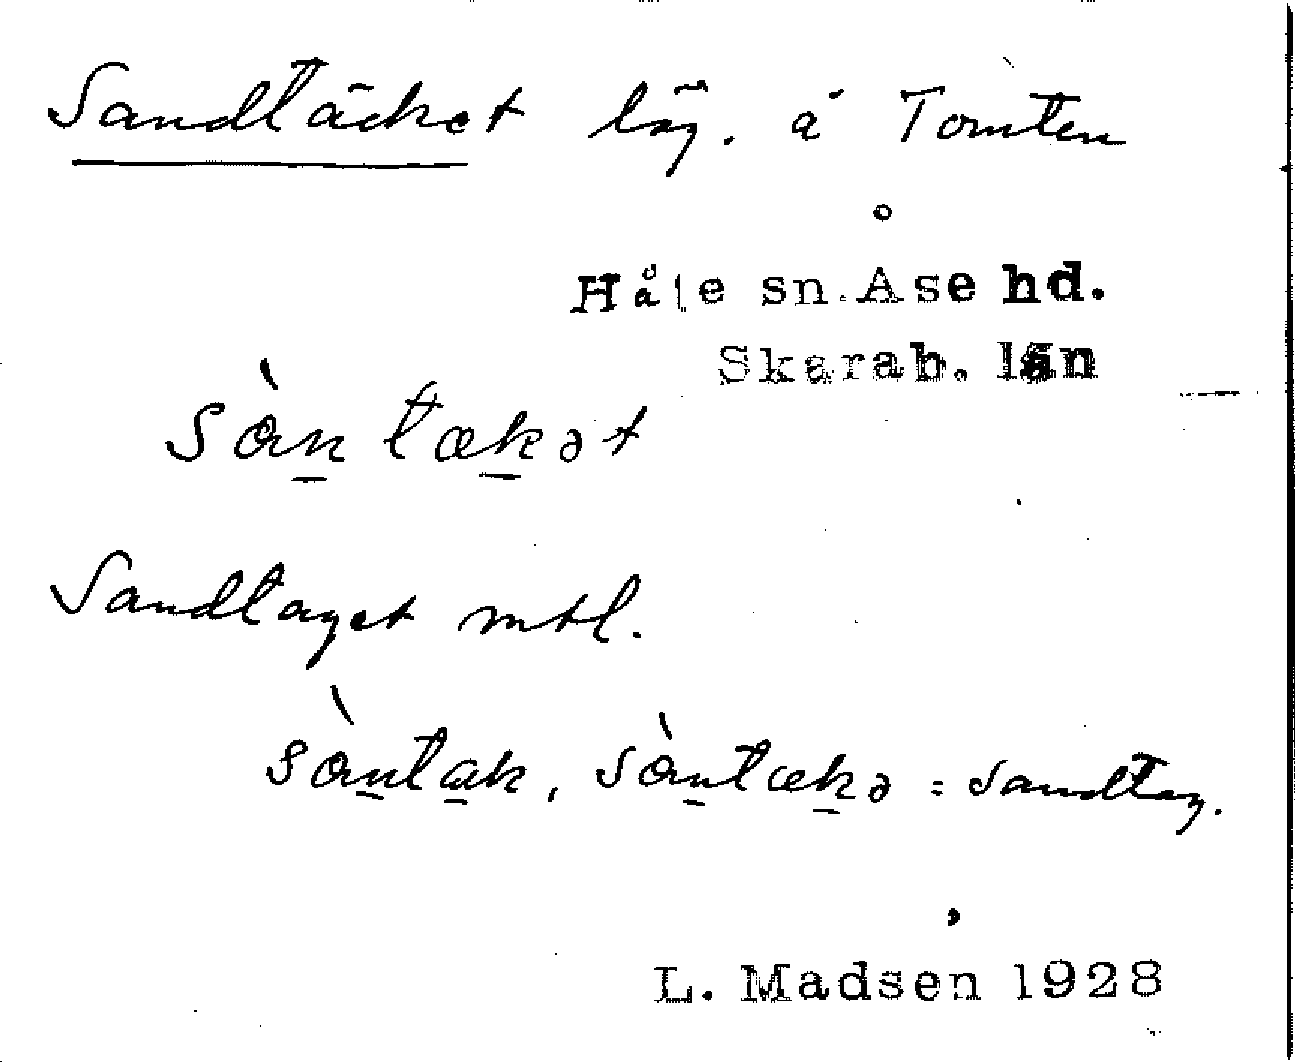 Sandtäcket läg. å Tomten
Håle sn. Åse hd.
Skarab. län
sàntækət
Sandtaget mtl.
sàntak, sàntækə = sandtag.
L. Madsen 1928